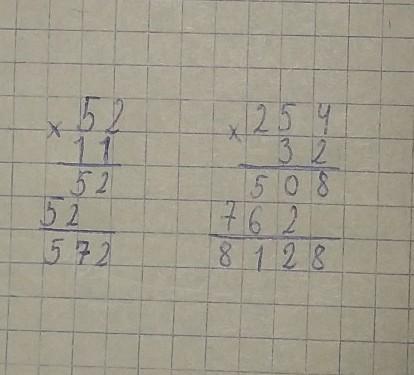 52
× 11
52
52
572
254
× 32
508
762
8128